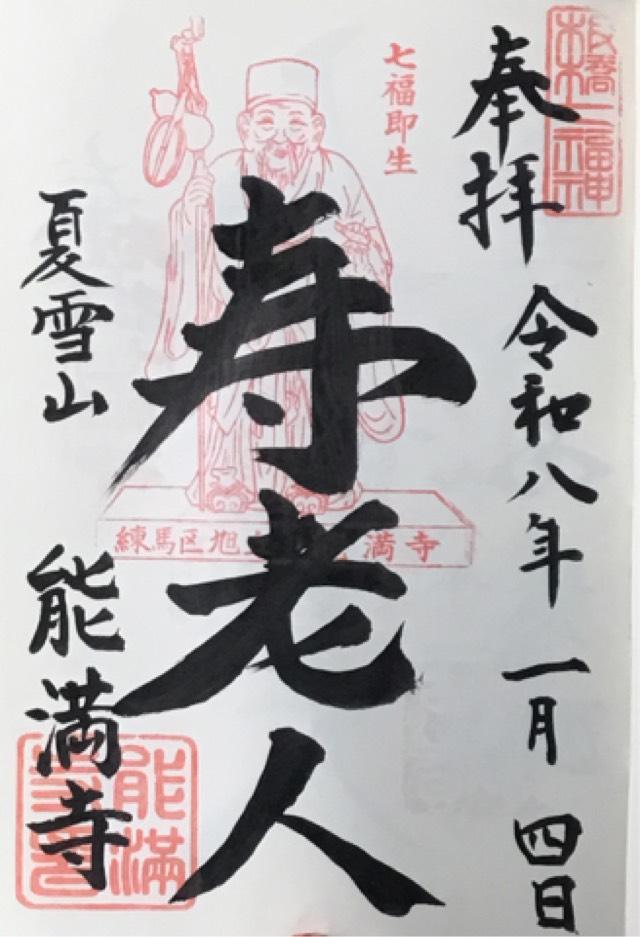 奉拝
令和八年一月四日
板橋七福神
七福即生
寿老人
練馬区旭
満寺
夏雪山
能満寺
能満